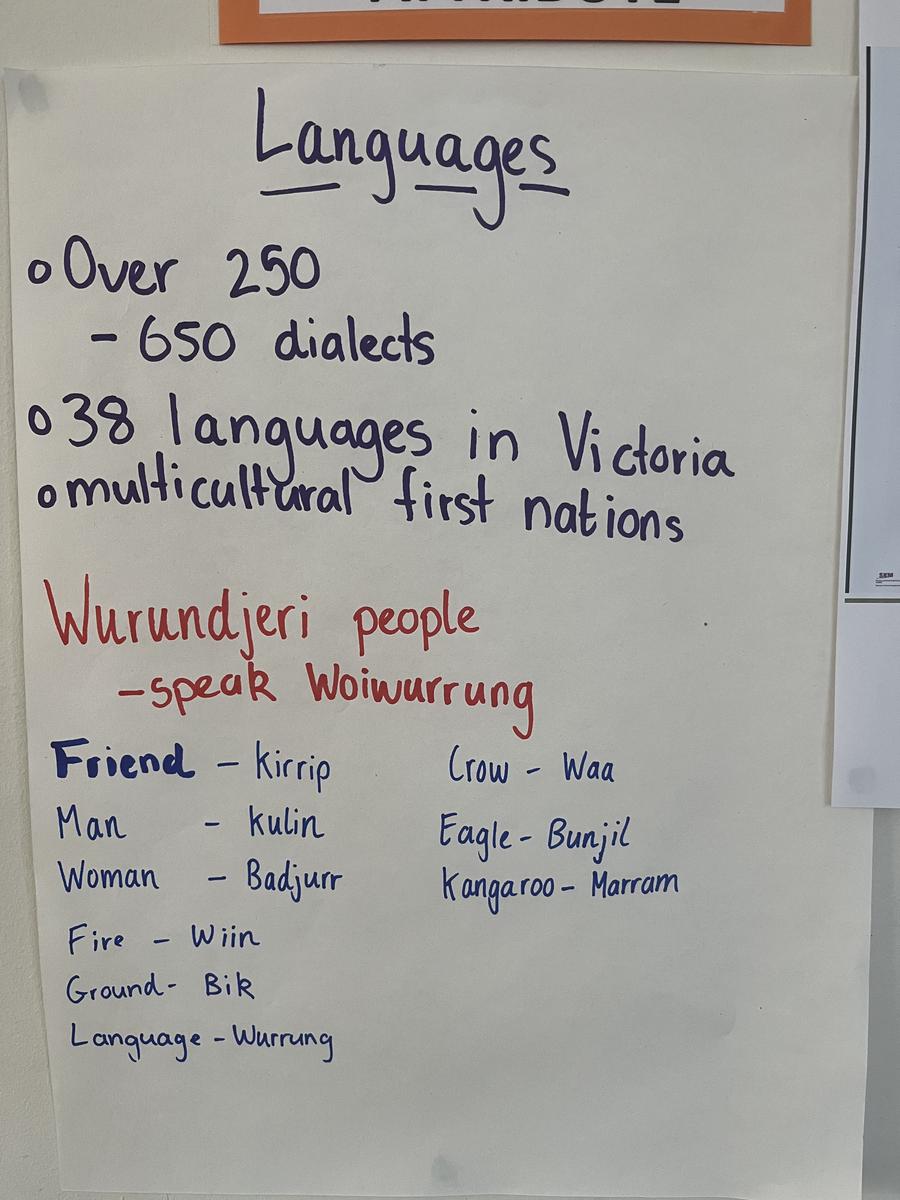 Languages
o Over 250
- 650 dialects
o 38 languages in Victoria
o multicultural first nations
Wurundjeri people
- speak Woiwurrung
Friend - Kirrip
Man - Kulin
Woman - Badjurr
Fire - Wiin
Ground - Bik
Language - Wurrung
Crow - Waa
Eagle - Bunjil
Kangaroo - Marram